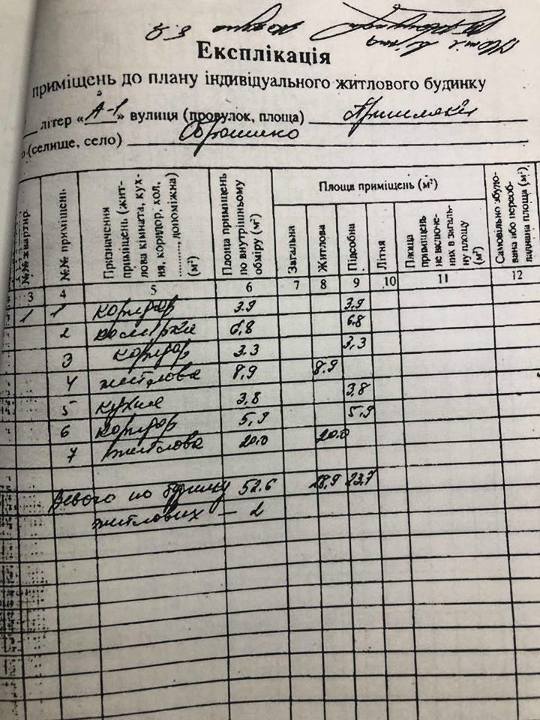 Експлікація
приміщень до плану індивідуального житлового будинку
літер «А-1» вулиця (провулок, площа)
(селище, село)
№№ квартир
№№ приміщень
Призначення приміщень (житлова кімната, кухня, коридор, хол, .........., допоміжна) (м²)
Площа приміщень по внутрішньому обміру (м²)
Площа приміщень (м²)
Загальна
Житлова
Підсобна
Літня
Площа приміщень не включених в загальну площу (м²)
Самовільно збудована або переобладнана площа (м²)
3 4 5 6 7 8 9 10 11 12
1 1 коридор 3.9 3.9
2 комірка 6.8 6.8
3 коридор 3.3 3.3
4 житлова 8,9 8.9
5 кухня 3,8 3.8
6 коридор 5,9 5,9
7 житлова 20.0 20.0
Всього по будинку 52.6 28,9 23.7
житлових — 2